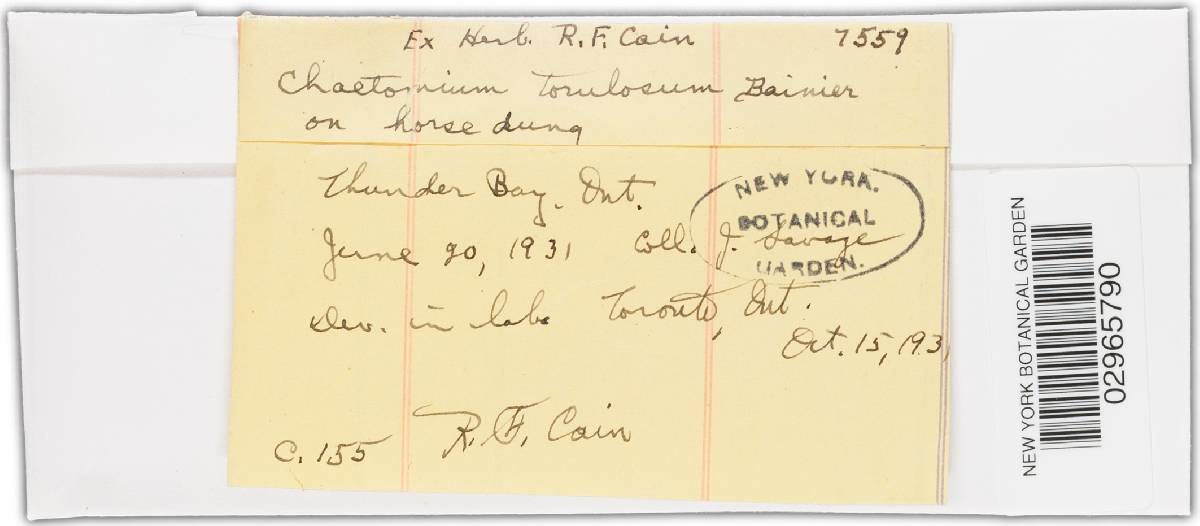 Ex Herb. R.F. Cain 7559
Chaetomium torulosum Bainier
on horse dung
Thunder Bay, Ont.
June 20, 1931 Coll. J. Savage
Dev. in lab. Toronto, Ont.
Oct. 15, 1931
C. 155 R. F. Cain
NEW YORK
BOTANICAL
GARDEN.
NEW YORK BOTANICAL GARDEN
02965790